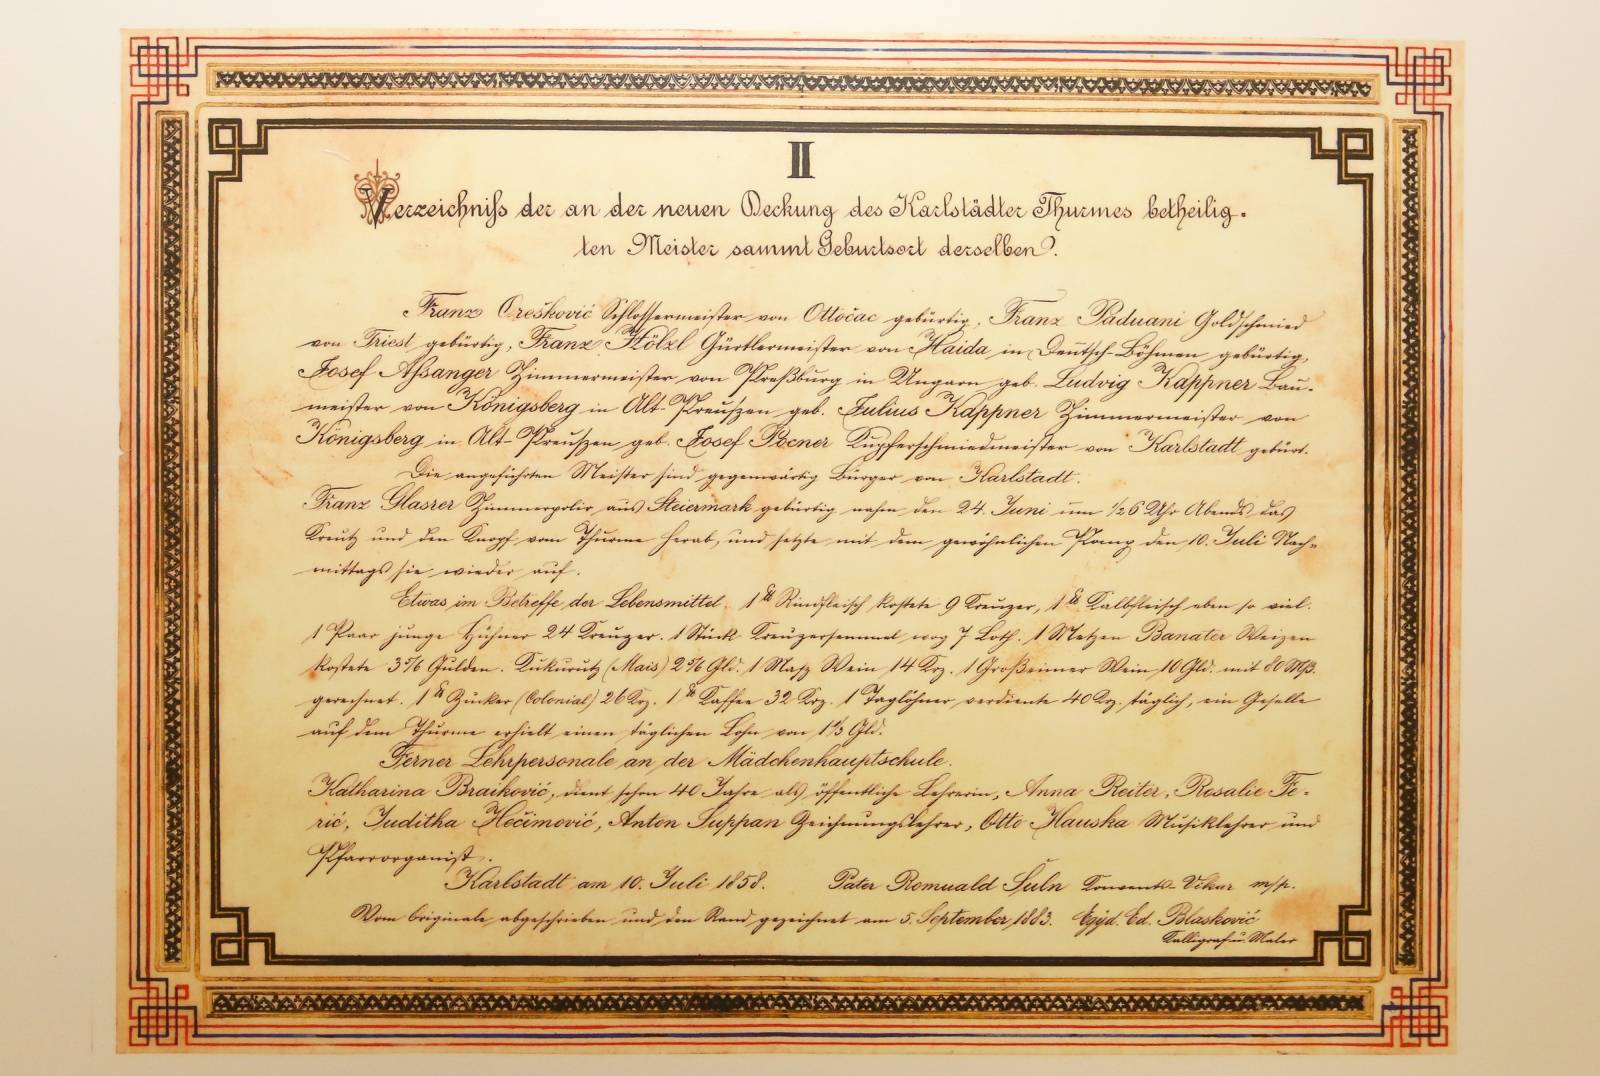 II
Verzeichniß der an der neuen Deckung des Karlstädter Thurmes betheilig-
ten Meister sammt Geburtsort derselben.
Franz Orešković Schlossermeister von Ottočac gebürtig, Franz Paduani Goldschmied
von Triest gebürtig, Franz Hölzl Gürtlermeister von Haida in Deutsch-Böhmen gebürtig,
Josef Aßanger Zimmermeister von Preßburg in Ungarn geb. Ludvig Kappner Bau-
meister von Königsberg in Alt-Preuszen geb. Julius Kappner Zimmermeister von
Königsberg in Alt-Preuszen geb. Josef Pocner Kupferschmiedmeister von Karlstadt gebürt.
Die angeführten Meister sind gegenwärtig Bürger von Karlstadt.
Franz Glasrer Zimmerpolir aus Steiermark gebürtig nahm den 24. Juni um ½6 Uhr Abends das
Kreutz und den Knopf vom Thurme herab, und setzte mit dem gewöhnlichen Pomp den 10. Juli Nach-
mittags sie wieder auf.
Etwas im Betreffe der Lebensmittel. 1 ℔ Rindfleisch kostete 9 Kreuzer, 1 ℔ Kalbfleisch eben so viel.
1 Paar junge Hühner 24 Kreuzer. 1 Stück Kreuzersemmel wog 7 Loth. 1 Metzen Banater Weizen
kostete Gulden. Kukurutz (Mais) Gld. 1 Masz Wein 14 Krz. 1 Großeimer Wein 10 Gld. mit 80 Mß.
gerechnet. 1 ℔ Zucker (Colonial) 26 Krz. 1 ℔ Kaffee 32 Krz. 1 Taglöhner verdiente 40 Krz. täglich, ein Geselle
auf dem Thurme erhielt einen täglichen Lohn von 1⅓ Gld.
Ferner Lehrpersonale an der Mädchenhauptschule.
Katharina Bračković, dient schon 40 Jahre als öffentliche Lehrerin, Anna Reiter, Rosalie Fe-
rić, Juditha Hećimović, Anton Suppan Zeichnungslehrer, Otto Hauska Musiklehrer und
Pfarrorganist.
Karlstadt am 10. Juli 1858. Pater Romuald Šuln Konvents-Vikar m/p.
Vom Originale abgeschrieben und den Rand gezeichnet am 5. September 1883. Egyd. Ed. Blasković
Kalligraf u. Maler